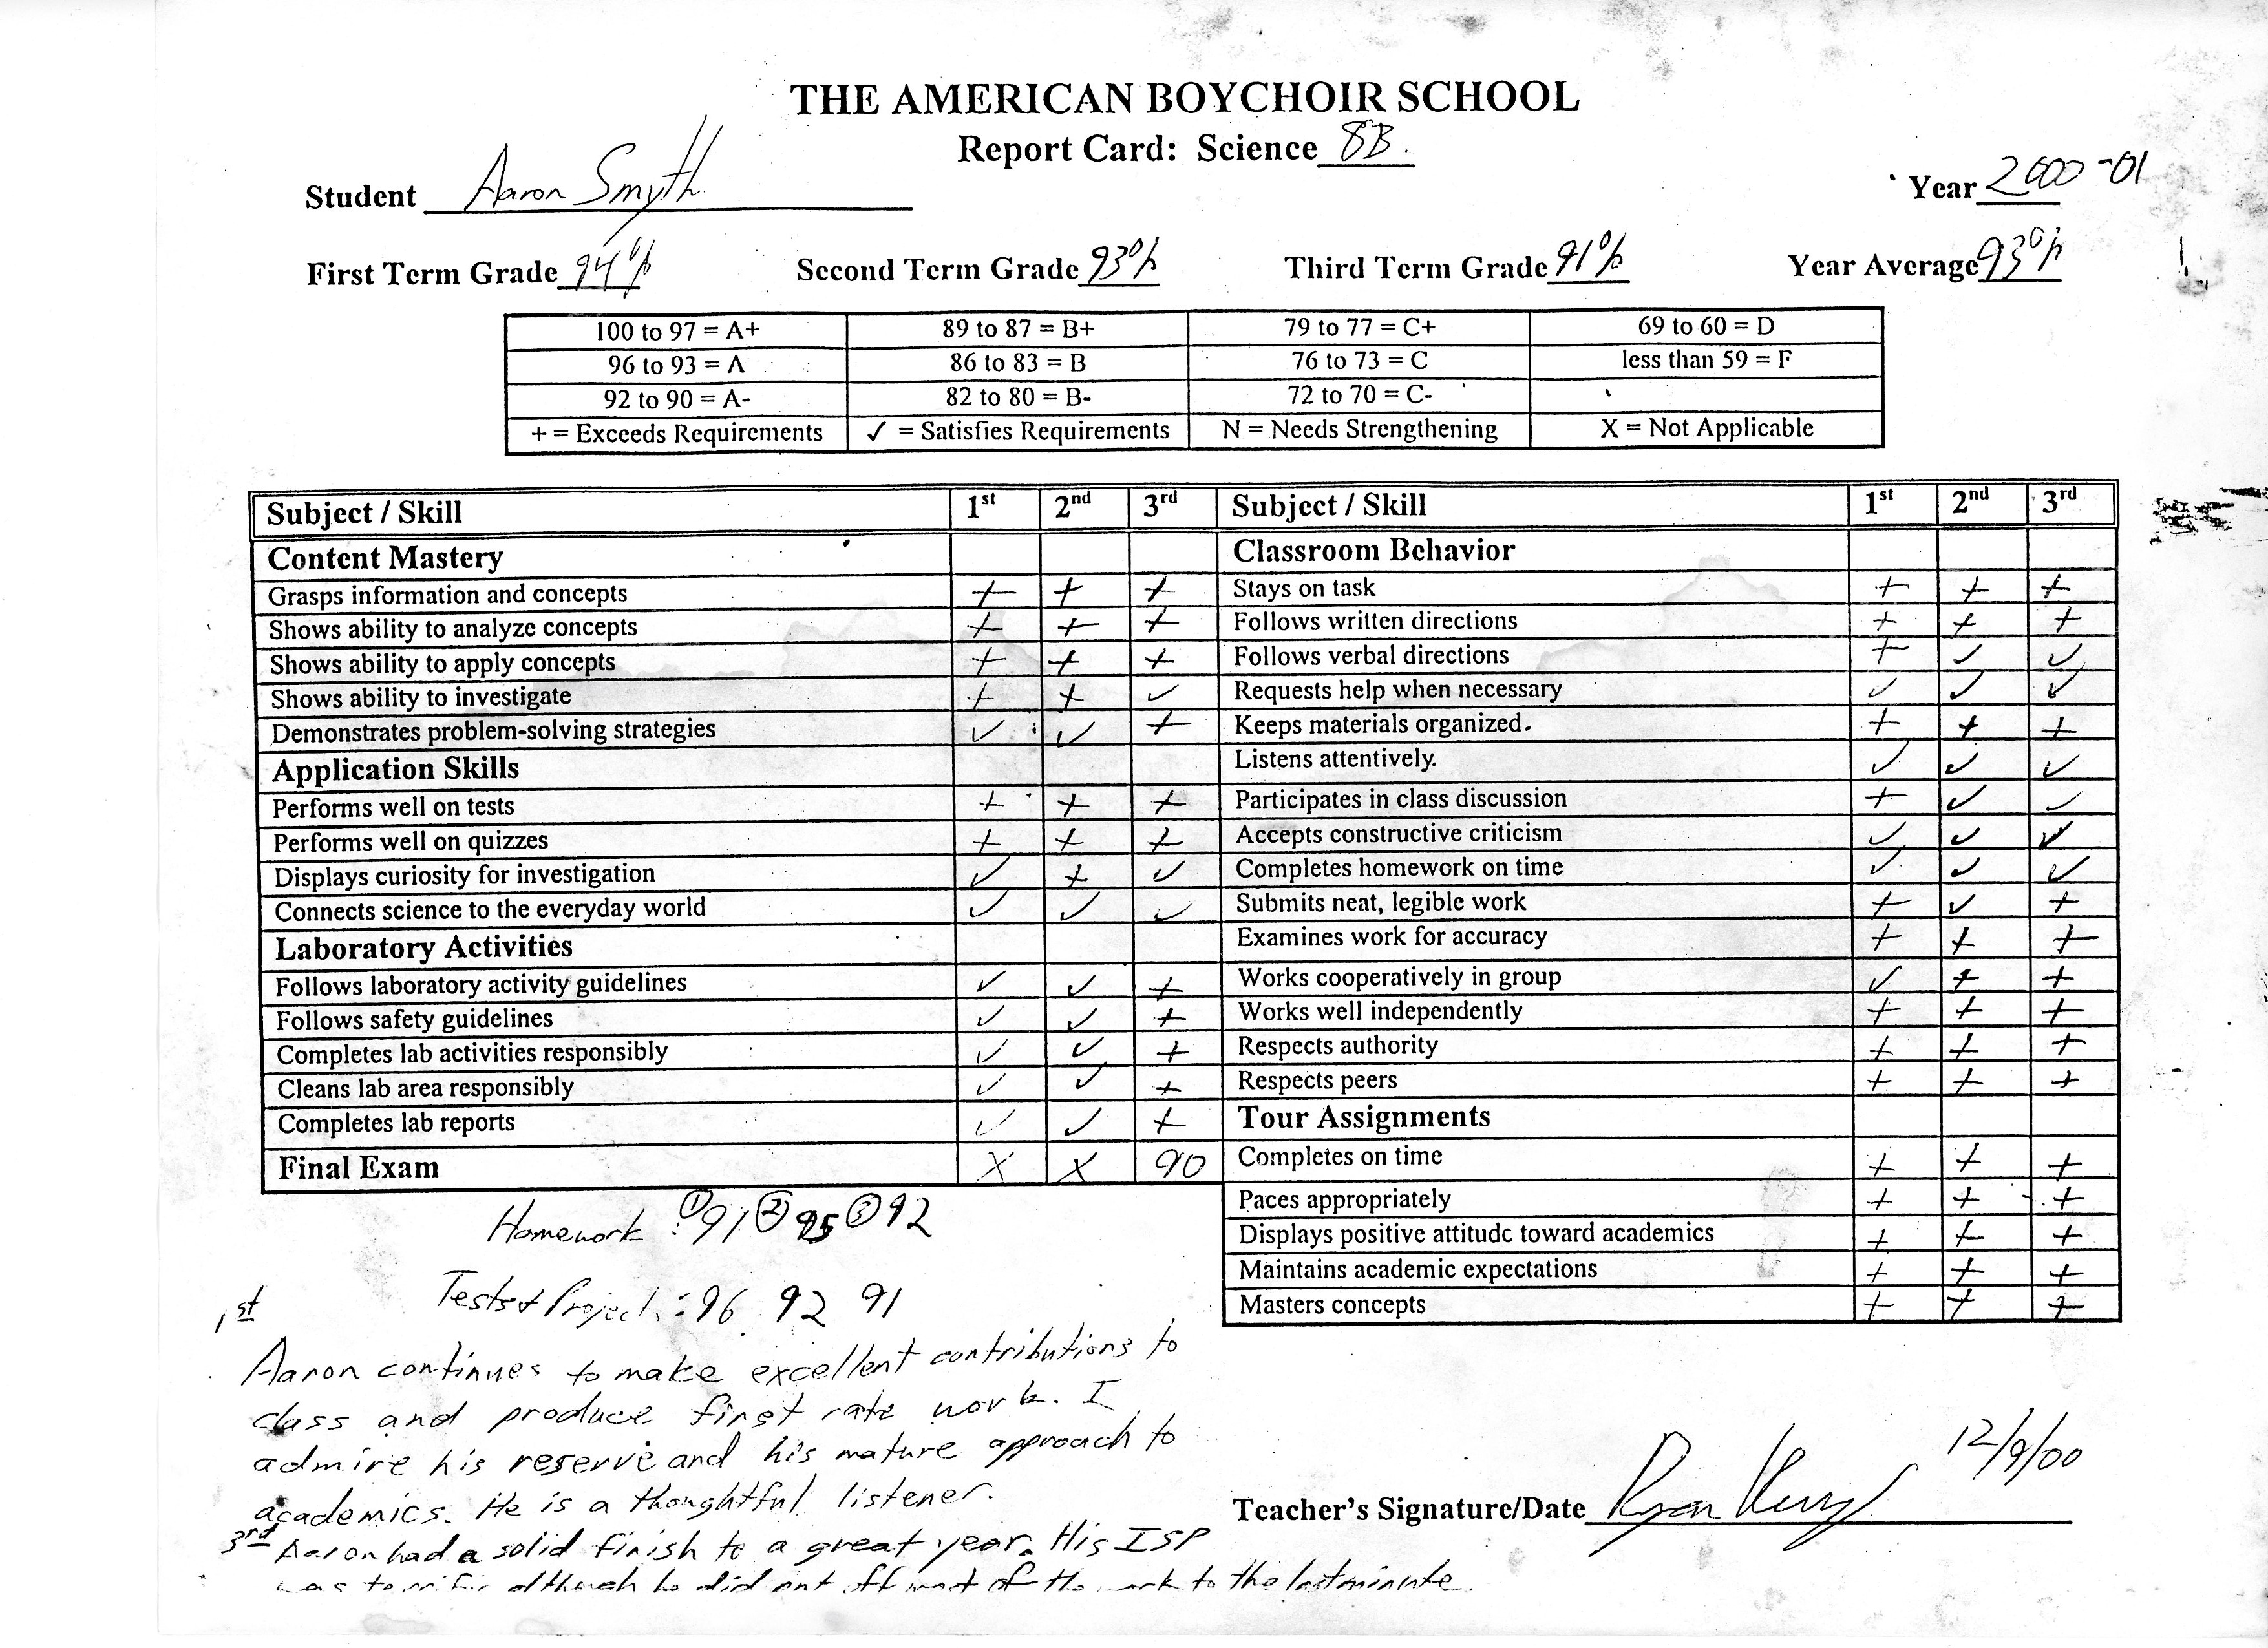 THE AMERICAN BOYCHOIR SCHOOL
Report Card: Science 8B
Student Aaron Smyth
Year 2000-01
First Term Grade 94% Second Term Grade 93% Third Term Grade 91% Year Average 93%
100 to 97 = A+ 89 to 87 = B+ 79 to 77 = C+ 69 to 60 = D
96 to 93 = A 86 to 83 = B 76 to 73 = C less than 59 = F
92 to 90 = A- 82 to 80 = B- 72 to 70 = C-
+ = Exceeds Requirements ✓ = Satisfies Requirements N = Needs Strengthening X = Not Applicable
Subject / Skill 1st 2nd 3rd
Content Mastery
Grasps information and concepts + + +
Shows ability to analyze concepts + + +
Shows ability to apply concepts + + +
Shows ability to investigate + + ✓
Demonstrates problem-solving strategies ✓ ✓ +
Application Skills
Performs well on tests + + +
Performs well on quizzes + + +
Displays curiosity for investigation ✓ + ✓
Connects science to the everyday world ✓ ✓ ✓
Laboratory Activities
Follows laboratory activity guidelines ✓ ✓ +
Follows safety guidelines ✓ ✓ +
Completes lab activities responsibly ✓ ✓ +
Cleans lab area responsibly ✓ ✓ +
Completes lab reports ✓ ✓ +
Final Exam X X 90
Subject / Skill 1st 2nd 3rd
Classroom Behavior
Stays on task + + +
Follows written directions + + +
Follows verbal directions + ✓ ✓
Requests help when necessary ✓ ✓ ✓
Keeps materials organized. + + +
Listens attentively. ✓ ✓ ✓
Participates in class discussion + ✓ ✓
Accepts constructive criticism ✓ ✓ ✓
Completes homework on time ✓ ✓ ✓
Submits neat, legible work + ✓ +
Examines work for accuracy + + +
Works cooperatively in group ✓ + +
Works well independently + + +
Respects authority + + +
Respects peers + + +
Tour Assignments
Completes on time + + +
Paces appropriately + + +
Displays positive attitude toward academics + + +
Maintains academic expectations + + +
Masters concepts + + +
Homework: ① 91 ② 95 ③ 92
Tests + Project: 96 92 91
1st
Aaron continues to make excellent contributions to
class and produce first rate work. I
admire his reserve and his mature approach to
academics. He is a thoughtful listener.
3rd Aaron had a solid finish to a great year. His ISP
was terrific although he did put off most of the work to the last minute.
Teacher's Signature/Date Ryan 12/9/00